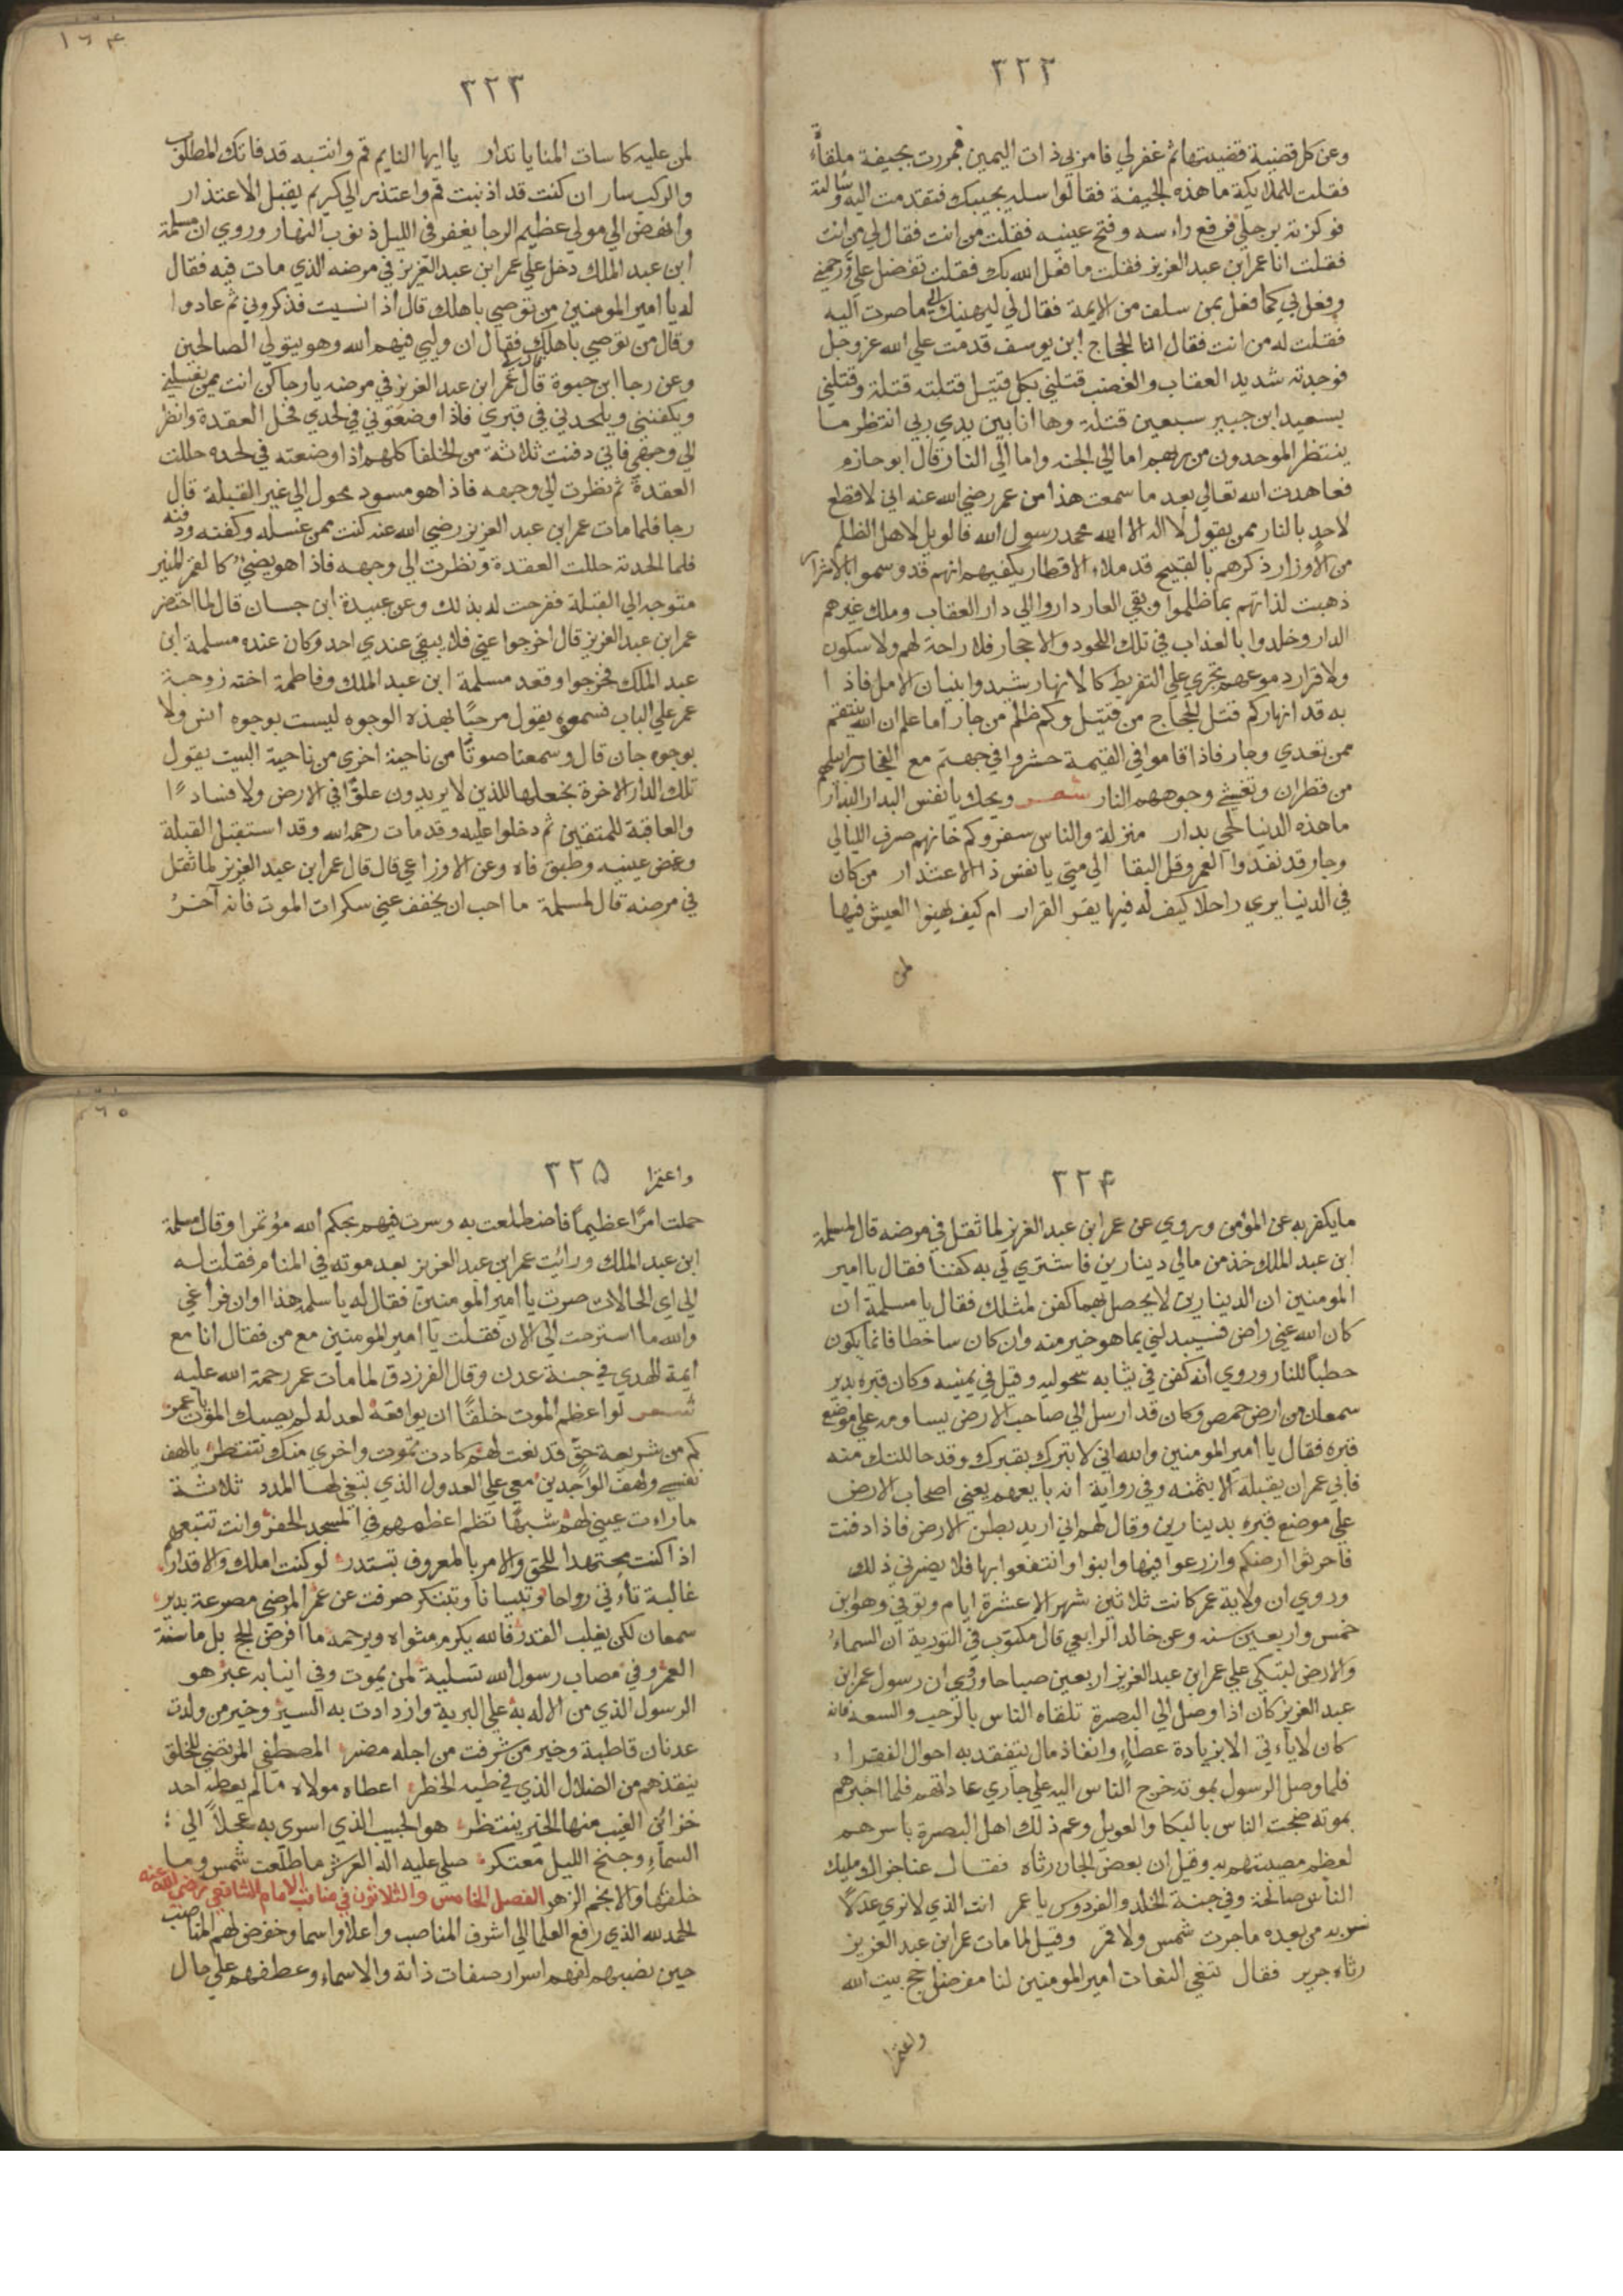 ٣٢٢
وعن كل قضية قضيتها ثم غفر لي فامر بي ذات اليمين فمررت بجيفة ملقاة
فقلت للملايكة ما هذه الجيفة فقالوا سله يجيبك فتقدمت اليه وسالته
فوكزته برجلي فرفع راسه وفتح عينيه فقلت من انت فقال لي من انت
فقلت انا عمر ابن عبد العزيز فقلت ما فعل الله بك فقلت تفضل علي ورحمني
وفعل بي كما فعل بمن سلف من الايمة فقال لي ليهنيك ما صرت اليه
فقلت له من انت فقال انا الحجاج ابن يوسف قدمت علي الله عز وجل
فوجدته شديد العقاب والغضب قتلني بكل قتيل قتلته قتلة وقتلني
بسعيد ابن جبير سبعين قتلة وها انا بين يدي ربي انتظر ما
ينتظر الموحدون من ربهم اما الي الجنه واما الي النار قال ابو حازم
فعاهدت الله تعالي بعد ما سمعت هذا من عمر رضي الله عنه اني لا قطع
لاحد بالنار ممن يقول لا اله الا الله محمد رسول الله فالويل لاهل الظلم
من الاوزار ذكرهم بالقبيح قد ملاء الاقطار يكفيهم انهم قد وسموا بالاشرار
ذهبت لذاتهم بما ظلموا وبقي العار داروا الي دار العقاب وملك غيرهم
الدار وخلدوا بالعذاب في تلك اللحود والاحجار فلا راحة لهم ولا سكون
ولا قرار دموعهم تجري علي التفريط كالانهار شيدوا بنيان الامل فاذا
به قد انهار كم قتل الحجاج من قتيل وكم ظلم من جار اما علم ان الله ينتقم
ممن تعدي وجار فاذا قاموا في القيمة حشروا في جهنم مع الفجار سرابيلهم
من قطران وتغشي وجوههم النار شعر ويحك يا نفس البدار البدار
ما هذه الدنيا لحي بدار منزلة والناس سفر وكم خانهم صرف الليالي
وجار قد نفدوا العمر وقل البقا الي متي يا نفس ذا الاعتذار من كان
في الدنيا يري راحلا كيف له فيها يقر القرار ام كيف يهنوا العيش فيها
لمن
١٦٤
٣٢٣
لمن عليه كاسات المنايا تدار يا ايها النايم قم وانتبه قد فاتك المطلوب
والركب سار ان كنت قد اذنبت قم واعتذر الي كريم يقبل الاعتذار
وانهض الي مولي عظيم الرجا يغفر في الليل ذنوب النهار وروي ان مسلمة
ابن عبد الملك دخل علي عمر ابن عبد العزيز في مرضه الذي مات فيه فقال
له يا امير المومنين من توصي باهلك قال اذا نسيت فذكروني ثم عادوا
وقال من توصي باهلك فقال ان وليي فيهم الله وهو يتولي الصالحين
وعن رجا ابن حيوة قال قال لي عمر ابن عبد العزيز في مرضه يا رجا كن انت ممن يغسلني
ويكفنني ويلحدني في قبري فاذا وضعتوني في لحدي فحل العقدة وانظر
الي وجهي فاني دفنت ثلاثة من الخلفا كلهم اذا وضعته في لحده حللت
العقدة ثم نظرت الي وجهه فاذا هو مسود محول الي غير القبلة قال
رجا فلما مات عمر ابن عبد العزيز رضي الله عنه كنت ممن غسله وكفنه ودفنه
فلما الحدته حللت العقدة ونظرت الي وجهه فاذا هو يضيء كالقمر المنير
متوجه الي القبلة ففرحت له بذلك وعن عبيدة ابن حسان قال لما احتضر
عمر ابن عبد العزيز قال اخرجوا عني فلا يبقي عندي احد وكان عنده مسلمة ابن
عبد الملك فخرجوا وقعد مسلمة ابن عبد الملك وفاطمة اخته زوجة
عمر علي الباب فسمعوه يقول مرحبًا بهذه الوجوه ليست بوجوه انس ولا
بوجوه جان قال وسمعنا صوتًا من ناحية اخري من ناحية البيت يقول
تلك الدار الاخرة نجعلها للذين لا يريدون علوًا في الارض ولا فسادًا
والعاقبة للمتقين ثم دخلوا عليه وقد مات رحمه الله وقد استقبل القبلة
وغض عينيه وطبق فاه وعن الاوزاعي قال قال عمر ابن عبد العزيز لما ثقل
في مرضه قال لمسلمة ما احب ان يخفف عني سكرات الموت فانه آخر
٣٢٤
ما يكفر به عن المؤمن وروي عن عمر ابن عبد العزيز لما ثقل في مرضه قال لمسلمة
ابن عبد الملك خذ من مالي دينارين فاشتري لي به كفنا فقال يا امير
المومنين ان الدينارين لا يحصل بهما كفن لمثلك فقال يا مسلمة ان
كان الله عني راض فسيبدلني بما هو خير منه وان كان ساخطا فانما يكون
حطبًا للنار وروي انه كفن في ثيابه سحوليه وقيل في يمنيه وكان قبره بدير
سمعان من ارض حمص وكان قد ارسل الي صاحب الارض يساومه علي موضع
قبره فقال يا امير المومنين والله اني لا تبرك بقبرك وقد حاللتك منه
فابي عمر ان يقبله الا بثمنه وفي رواية انه بايعهم يعني اصحاب الارض
علي موضع قبره بدينارين وقال لهم اني اريد بطن الارض فاذا دفنت
فاحرثوا ارضكم وازرعوا فيها وابنوا وانتفعوا بها فلا يضرني ذلك
وروي ان ولاية عمر كانت ثلاثين شهر الا عشرة ايام وتوفي وهو ابن
خمس واربعين سنه وعن خالد الرابعي قال مكتوب في التورية ان السماء
والارض لتبكي علي عمر ابن عبد العزيز اربعين صباحا وروي ان رسول عمر ابن
عبد العزيز كان اذا وصل الي البصرة تلقاه الناس بالرحب والسعه فانه
كان لا ياتي الا بزيادة عطاء وانفاذ مال يتفقد به احوال الفقراء
فلما وصل الرسول بموته خرج الناس اليه علي جاري عاداتهم فلما اخبرهم
بموته ضجت الناس بالبكا والعويل وعم ذلك اهل البصرة باسرهم
لعظم مصيبتهم به وقيل ان بعض الجان رثاه فقال عنا جزاك مليك
الناس صالحة وفي جنة الخلد والفردوس يا عمر انت الذي لا نري عدلا
نسر به من بعده ما جرت شمس ولا قمر وقيل لما مات عمر ابن عبد العزيز
رثاه جرير فقال تنعي النعات امير المومنين لنا مفضل حج بيت الله
واعتمرا
١٦٥
٣٢٥ واعتمرا
حملت امرًا عظيمًا فاضطلعت به وسرت فيهم بحكم الله مؤتمرا وقال مسلمة
ابن عبد الملك ورايت عمر ابن عبد العزيز بعد موته في المنام فقلت له
الي اي الحالات صرت يا امير المومنين فقال له يا سلمه هذا اوان فراغي
والله ما استرحت الي الان فقلت يا امير المومنين مع من فقال انا مع
ايمة الهدي في جنة عدن وقال الفرزدق لما مات عمر رحمة الله عليه
شعر لو اعظم الموت خلقًا ان يواقعه لعدله لم يصبك الموت يا عمر
كم من شريعة حق قد نعت لهم كادت تموت واخري منك تنتظر يا لهف
نفسي ولهف الواجدين معي علي العدول الذي تبغي لها المدد ثلاثة
ما رات عيني لهم شبهًا تظم اعظمهم في المسجد الحفر وانت تتبعهم
اذا كنت مجتهدا للحق والامر بالمعروف تبتدر لو كنت املك والاقدار
غالبة تاءتي رواحا وتبيانا وتبتكر صرفت عن عمر المرضي مصرعه بدير
سمعان لكن يغلب القدر فالله يكرم مثواه ويرحمه ما افرض الحج بل ما سنة
العمر وفي مصاب رسول الله تسلية لمن يموت وفي انيابه عبر هو
الرسول الذي من الاله به علي البرية وازدادت به السير وخير من ولدت
عدنان قاطبة وخير من شرفت من اجله مضر المصطفي المرتضي للخلق
ينقذهم من الضلال الذي في طيه الخطر اعطاه مولاه ما لم يعطه احد
خزائن الغيب منها الخير ينتظر هو الحبيب الذي اسري به عجلاً الي
السماء وجنح الليل معتكر صلي عليه اله العرش ما طلعت شمس وما
خلفها والانجم الزهر الفصل الخامس والثلاثون في مناقب الامام الشافعي رضي الله عنه
الحمد لله الذي رفع العلما الي اشرف المناصب واعلا واسما وخفض لهم المناصب
حين نصبهم لفهم اسرار صفات ذاته والاسماء وعطفهم علي حال